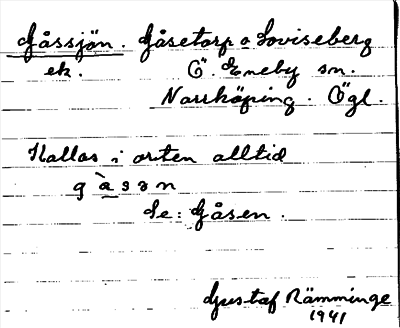 Gåssjön. Gåsetorp o Loviseberg
ek. Ö. Eneby sn.
Norrköping. Ögl.
Kallas i orten alltid
g å̀ s ɜ n
Se: Gåsen.
Gustaf Rämminge
1941